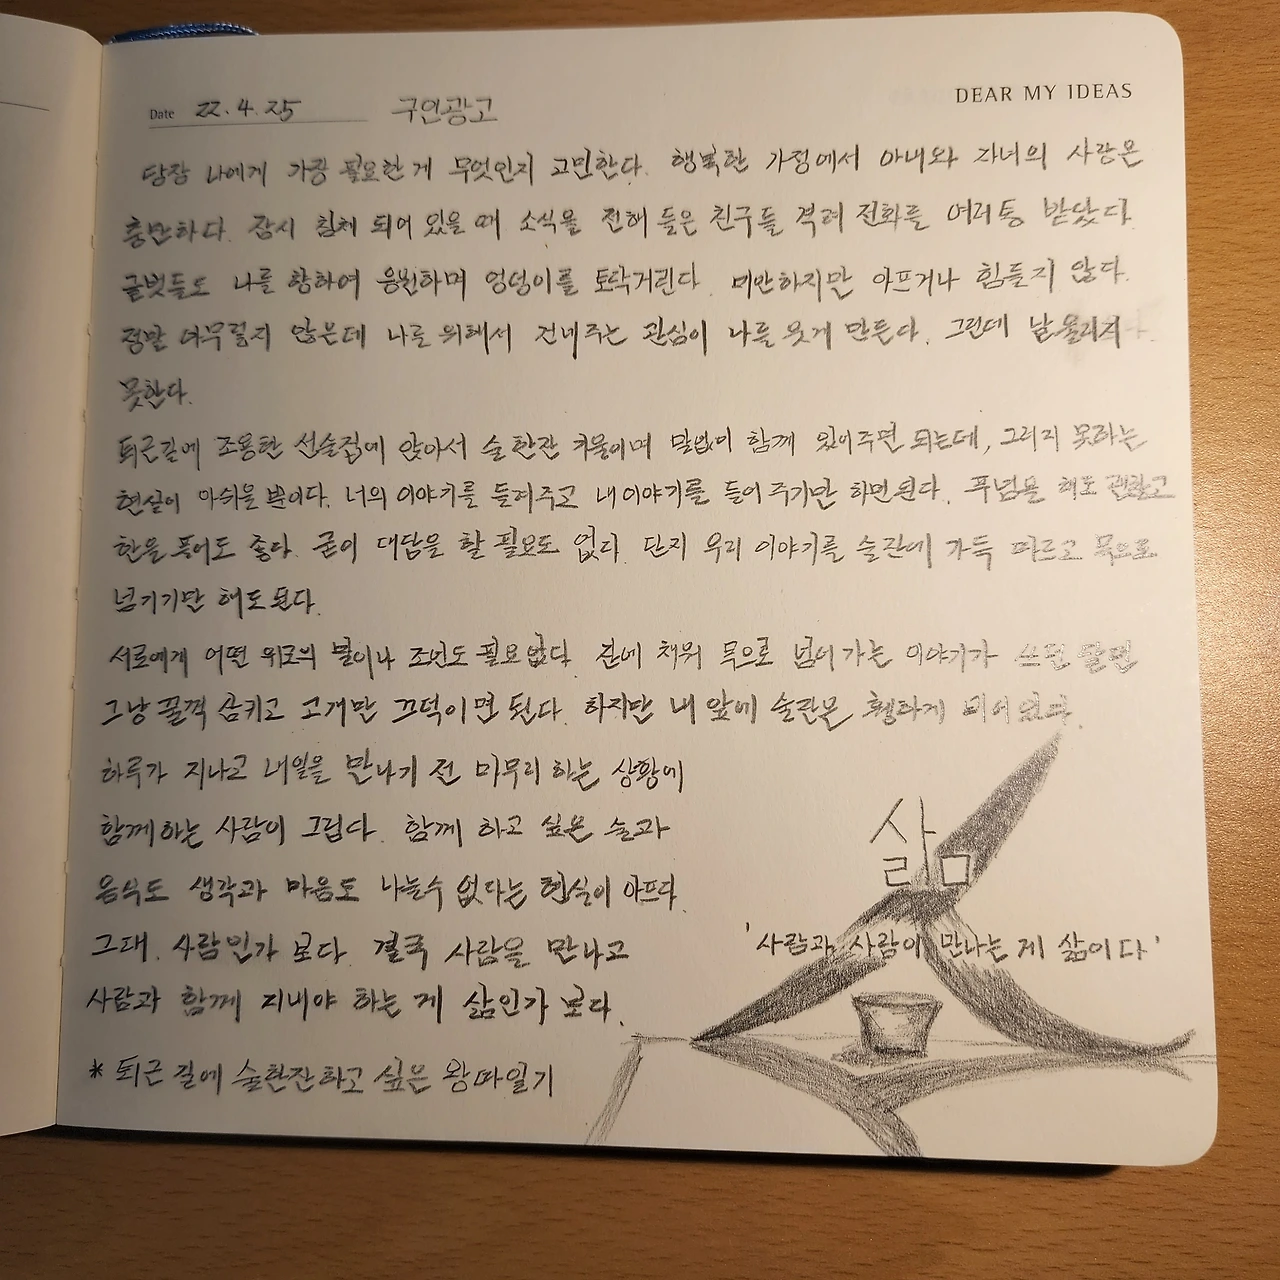 DEAR MY IDEAS
Date 22.4.25 구인광고
당장 나에게 가장 필요한 게 무엇인지 고민한다. 행복한 가정에서 아내와 자녀의 사랑은
충만하다. 잠시 침체 되어 있을 때 소식을 전해 들은 친구들 격려 전화를 여러 통 받았다.
글벗들도 나를 향하여 응원하며 엉덩이를 토닥거린다. 미안하지만 아프거나 힘들지 않다.
정말 아무렇지 않은데 나를 위해서 건네주는 관심이 나를 웃게 만든다. 그런데 날 울리지
못한다.
퇴근길에 조용한 선술집에 앉아서 술 한잔 기울이며 말없이 함께 있어주면 되는데, 그러지 못하는
현실이 아쉬울 뿐이다. 너의 이야기를 들려주고 내 이야기를 들어 주기만 하면 된다. 푸념을 해도 괜찮고
한을 풀어도 좋다. 굳이 대답을 할 필요도 없다. 단지 우리 이야기를 술잔에 가득 따르고 목으로
넘기기만 해도 된다.
서로에게 어떤 위로의 말이나 조언도 필요 없다. 잔에 채워 목으로 넘어 가는 이야기가 쓰던 달던
그냥 꿀꺽 삼키고 고개만 끄덕이면 된다. 하지만 내 앞에 술잔은 휑하게 비어 있다.
하루가 지나고 내일을 만나기 전 마무리 하는 상황에
함께 하는 사람이 그립다. 함께 하고 싶은 술과
음식도 생각과 마음도 나눌수 없다는 현실이 아프다.
그대. 사람인가 보다. 결국 사람을 만나고
사람과 함께 지내야 하는 게 삶인가 보다.
* 퇴근 길에 술한잔하고 싶은 왕따일기
삶
'사람과 사람이 만나는 게 삶이다'